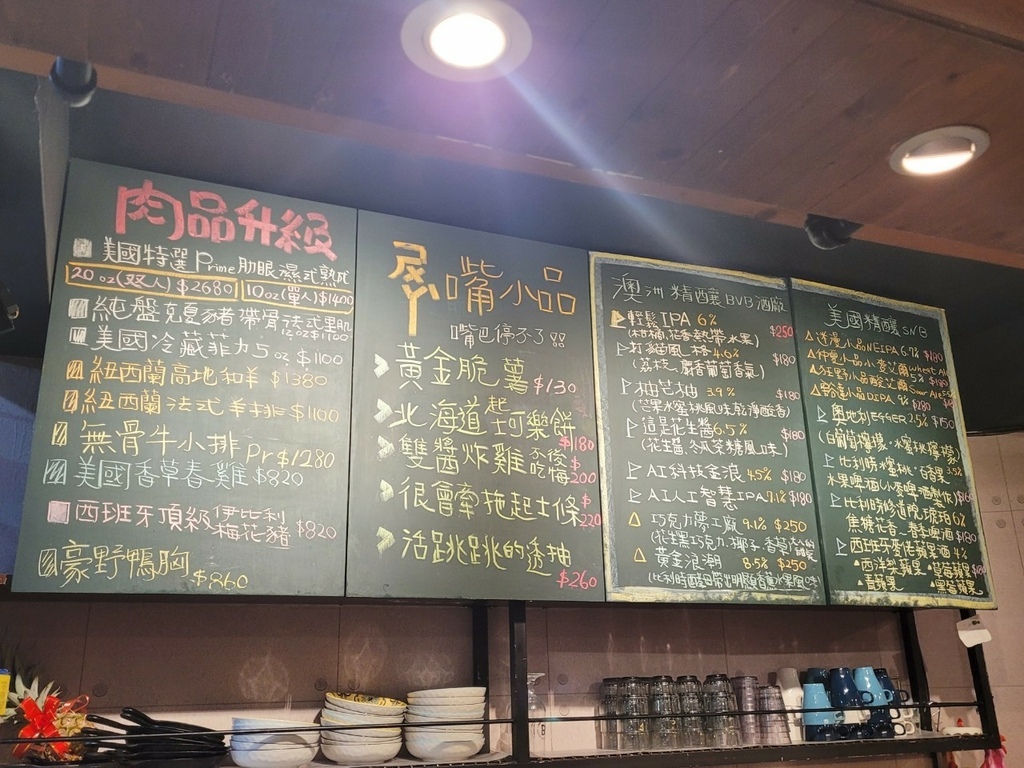 肉品升級
美國特選Prime肋眼濕式熟成
20oz(双人)$2680 10oz(單人)$1400
純盤克夏豬帶骨法式里肌
12oz $1100
美國冷藏菲力5oz $1100
紐西蘭高地和羊 $1380
紐西蘭法式羊排 $1100
無骨牛小排Pr $1280
美國香草春雞 $820
西班牙頂級伊比利
梅花豬 $820
豪野鴨胸 $860
嘴小品
嘴巴停不了!!
黃金脆薯 $130
北海道起士可樂餅 $180
雙醬炸雞不後悔 $200
很會牽拖起士條 $220
活跳跳的透抽
$260
澳洲精釀BVB酒廠
輕鬆IPA 6% $250
(柑橘,花香熱帶水果)
打貓風格 4.6% $180
(荔枝、麝香葡萄香氣)
柚芒柚 3.9% $180
(芒果水蜜桃風味乾淨酸香)
這是花生醬 6.5% $180
(花生醬、冬瓜茶糖風味)
AI科技金浪 4.5% $180
AI人工智慧IPA 7.1% $180
巧克力夢工廠 9.1% $250
(花生果巧克力,椰子
黃金浪潮 8.5% $250
美國精釀 SNB
迷漫小品NEIPA 6.7% $180
仲夏小品小麥艾爾 Wheat Ale
5% $180
狂野小品酸艾爾 Sour Ale
豐違小品DIPA 9% $280
奧地利EFFER 2.5% $150
(白葡萄檸檬、水蜜桃檸檬)
比利時蜜桃、百香果 3.5%
水果啤酒(小麥啤酒製作)
比利時修道院琥珀 6%
焦糖花香~香料啤酒
西班牙麥佬蘋果酒 4%
西洋梨蘋果 草莓蘋果
青蘋果 黑莓蘋果